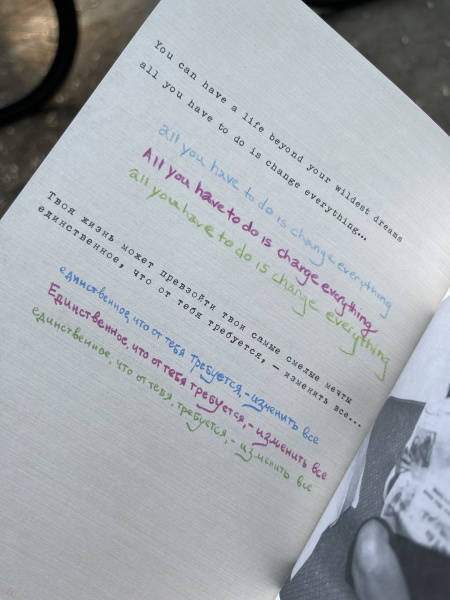 You can have a life beyond your wildest dreams
all you have to do is change everything...
all you have to do is change everything
All you have to do is change everything
all you have to do is change everything
Твоя жизнь может превзойти твои самые смелые мечты
единственное, что от тебя требуется, — изменить все...
единственное, что от тебя требуется, - изменить все
Единственное, что от тебя требуется, - изменить все
единственное, что от тебя, требуется, - изменить все